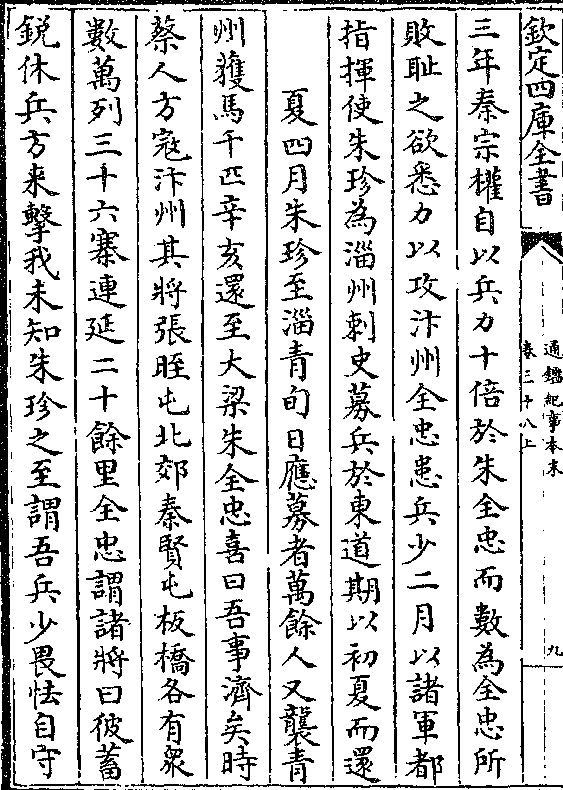 欽定四庫全書
通鑑紀事本末
卷三十八上
九
三年秦宗權自以兵力十倍於朱全忠而數為全忠所
敗恥之欲悉力以攻汴州全忠患兵少二月以諸軍都
指揮使朱珍為淄州刺史募兵於東道期以初夏而還
夏四月朱珍至淄青旬日應募者萬餘人又襲青
州獲馬千匹辛亥還至大梁朱全忠喜曰吾事濟矣時
蔡人方寇汴州其將張晊屯北郊秦賢屯板橋各有衆
數萬列三十六寨連延二十餘里全忠謂諸將曰彼蓄
鋭休兵方来擊我未知朱珍之至謂吾兵少畏怯自守